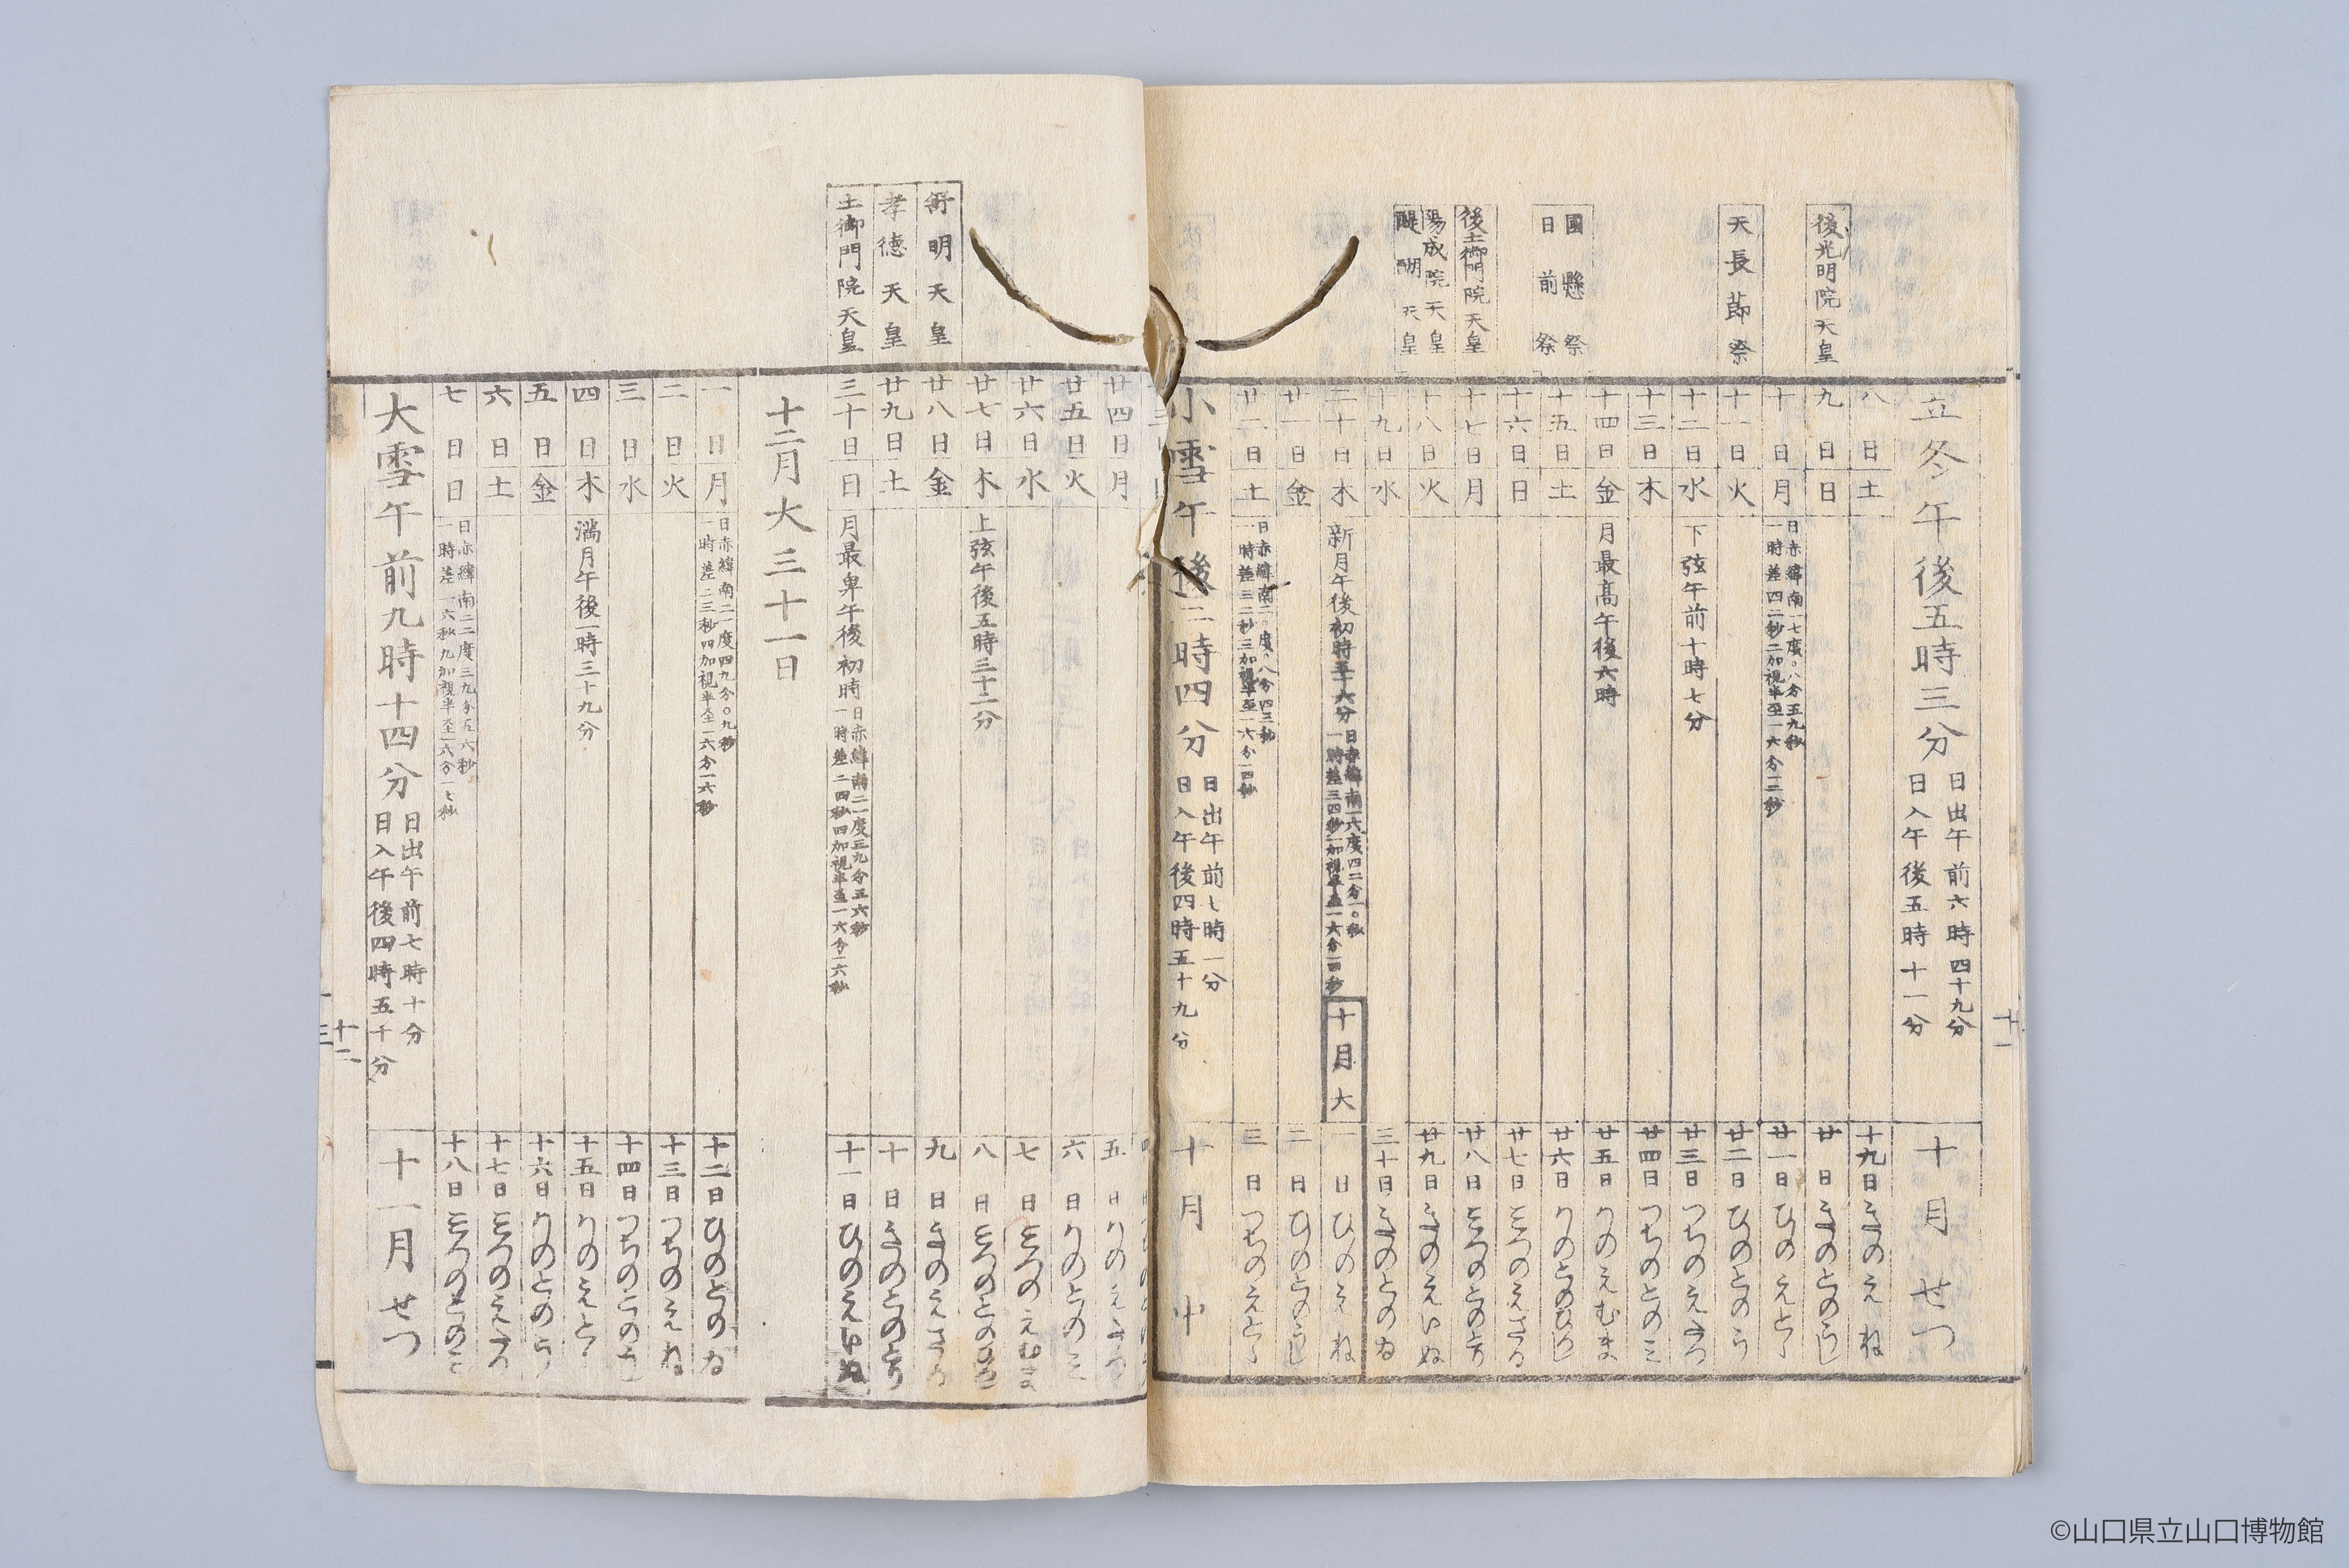 立冬午後五時三分 日出午前六時四十九分 日入午後五時十一分 十月せつ
八日土 十九日きのえね
後光明院天皇 九日日 廿日きのとのうし
十日月 日赤緯南一七度〇八分五九秒 一時差四二秒二加視半至一六分一二秒 廿一日ひのえとら
天長節祭 十一日火 廿二日ひのとのう
十二日水 下弦午前十時七分 廿三日つちのえたつ
十三日木 廿四日つちのとのミ
十四日金 月最高午後六時 廿五日かのえむま
國懸祭 日前祭 十五日土 廿六日かのとのひつし
十六日日 廿七日ミつのえさる
後土御門院天皇 十七日月 廿八日ミつのとのとり
陽成院天皇 醍醐天皇 十八日火 廿九日きのえいぬ
十九日水 三十日きのとのゐ
二十日木 新月午後初時五十六分 十月大 一日ひのえね
廿一日金 二日ひのとのうし
廿二日土 三日つちのえとら
小雪午後二時四分 日出午前七時一分 日入午後四時五十九分 十月中
廿四日月 五日かのえたつ
廿五日火 六日かのとのミ
廿六日水 七日ミつのえむま
廿七日木 上弦午後五時三十二分 八日ミつのとのひつし
舒明天皇 廿八日金 九日きのえさる
孝徳天皇 廿九日土 十日きのとのとり
土御門院天皇 三十日日 月最卑午後初時 日赤緯南二一度三九分五六秒 一時差二四秒四加視半至一六分一六秒 十一日ひのえいぬ
十二月大三十一日
一日月 日赤緯南二一度四九分〇九秒 一時差二三秒四加視半至一六分一六秒 十二日ひのとのゐ
二日火 十三日つちのえね
三日水 十四日つちのとのうし
四日木 満月午後一時三十九分 十五日かのえとら
五日金 十六日かのとのう
六日土 十七日ミつのえたつ
七日日 日赤緯南二二度三九分五六秒 一時差一六秒九加視半至一六分一七秒 十八日ミつのとのミ
大雪午前九時十四分 日出午前七時十分 日入午後四時五十分 十一月せつ
十一
十二
©山口県立山口博物館